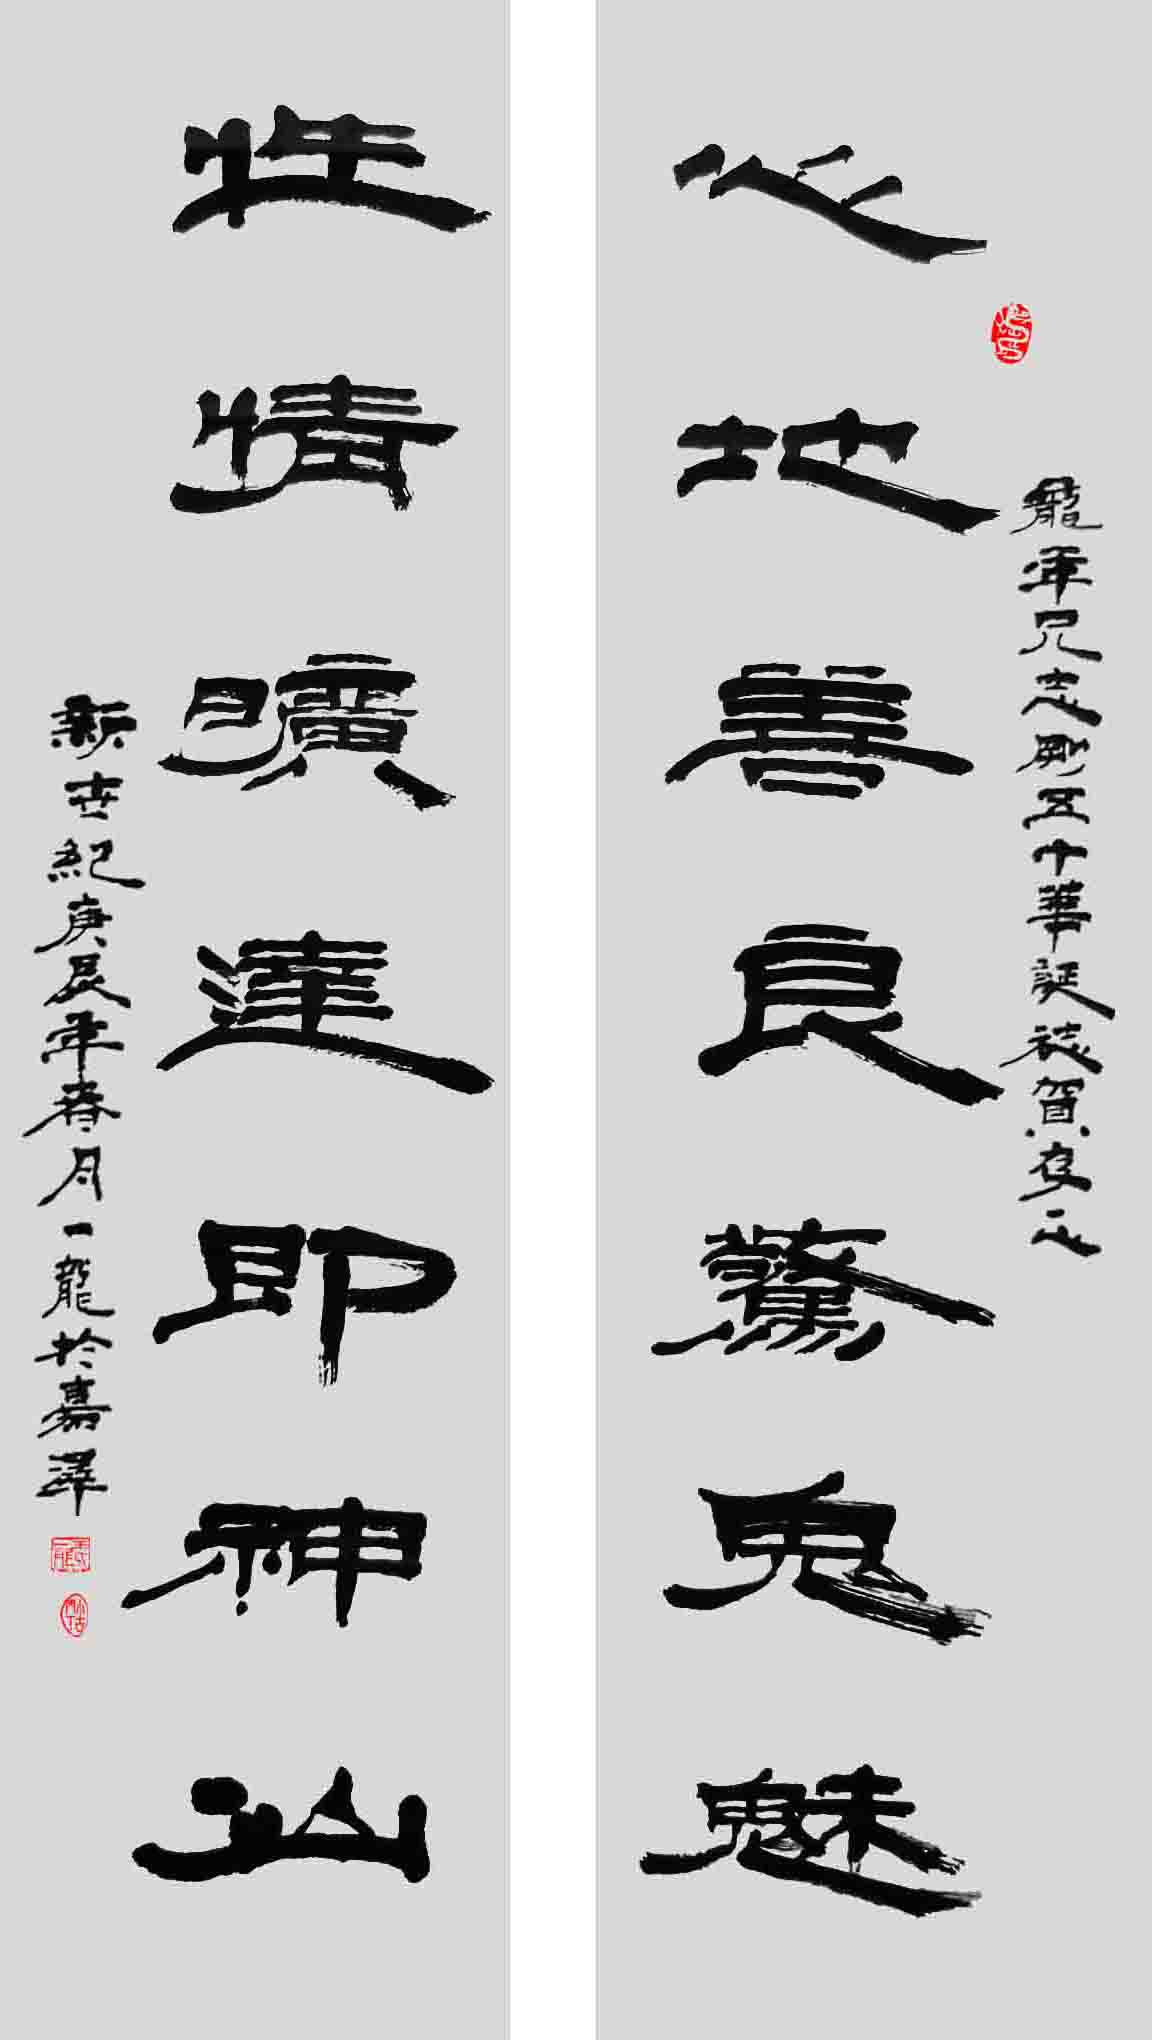 龍年兄志剛五十華誕誌賀存正
心地善良驚鬼魅
性情曠達即神仙
新世紀庚辰年春月一龍於嘉澤